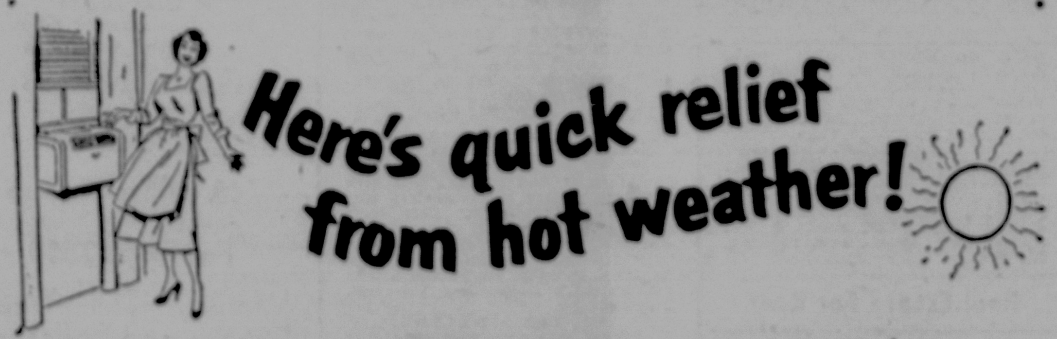 Here's quick relief
from hot weather!